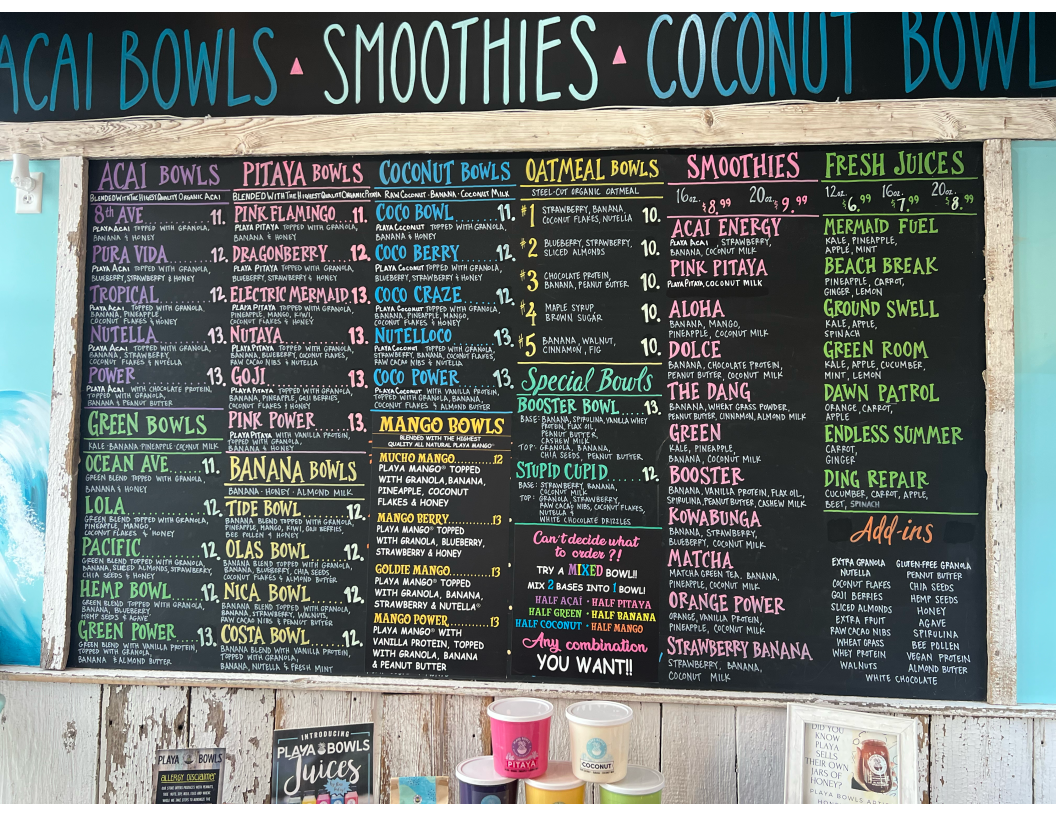 ACAI BOWLS ▲ SMOOTHIES ▲ COCONUT BOWL
ACAI BOWLS
BLENDED WITH THE HIGHEST QUALITY ORGANIC ACAI
8th AVE 11.
PLAYA ACAI TOPPED WITH GRANOLA,
BANANA & HONEY
PURA VIDA 12.
PLAYA ACAI TOPPED WITH GRANOLA,
BLUEBERRY STRAWBERRY & HONEY
TROPICAL 12.
PLAYA ACAI TOPPED WITH GRANOLA,
BANANA, PINEAPPLE,
COCONUT FLAKES & HONEY
NUTELLA 13.
PLAYA ACAI TOPPED WITH GRANOLA,
BANANA, STRAWBERRY,
COCONUT FLAKES & NUTELLA
POWER 13.
PLAYA ACAI WITH CHOCOLATE PROTEIN,
TOPPED WITH GRANOLA,
BANANA & PEANUT BUTTER
GREEN BOWLS
KALE · BANANA · PINEAPPLE · COCONUT MILK
OCEAN AVE 11.
GREEN BLEND TOPPED WITH GRANOLA,
BANANA & HONEY
LOLA 12.
GREEN BLEND TOPPED WITH GRANOLA,
PINEAPPLE, MANGO,
COCONUT FLAKES & HONEY
PACIFIC 12.
GREEN BLEND TOPPED WITH GRANOLA,
BANANA, SLICED ALMONDS, STRAWBERRY,
CHIA SEEDS & HONEY
HEMP BOWL 12.
GREEN BLEND TOPPED WITH GRANOLA,
BANANA, BLUEBERRY,
HEMP SEEDS & AGAVE
GREEN POWER 13.
GREEN BLEND WITH VANILLA PROTEIN,
TOPPED WITH GRANOLA,
BANANA & ALMOND BUTTER
PITAYA BOWLS
BLENDED WITH THE HIGHEST QUALITY ORGANIC PITAYA
PINK FLAMINGO 11.
PLAYA PITAYA TOPPED WITH GRANOLA,
BANANA & HONEY
DRAGONBERRY 12.
PLAYA PITAYA TOPPED WITH GRANOLA,
BLUEBERRY, STRAWBERRY & HONEY
ELECTRIC MERMAID 13.
PLAYA PITAYA TOPPED WITH GRANOLA,
PINEAPPLE, MANGO, KIWI,
COCONUT FLAKES & HONEY
NUTAYA 13.
PLAYA PITAYA TOPPED WITH GRANOLA,
BANANA, BLUEBERRY, COCONUT FLAKES,
RAW CACAO NIBS & NUTELLA
GOJI 13.
PLAYA PITAYA TOPPED WITH GRANOLA,
BANANA, PINEAPPLE, GOJI BERRIES,
COCONUT FLAKES & HONEY
PINK POWER 13.
PLAYA PITAYA WITH VANILLA PROTEIN,
TOPPED WITH GRANOLA,
BANANA & HONEY
BANANA BOWLS
BANANA · HONEY · ALMOND MILK
TIDE BOWL 12.
BANANA BLEND TOPPED WITH GRANOLA,
PINEAPPLE, MANGO, KIWI, GOJI BERRIES,
BEE POLLEN & HONEY
OLAS BOWL 12.
BANANA BLEND TOPPED WITH GRANOLA,
BANANA, BLUEBERRY, CHIA SEEDS,
COCONUT FLAKES & ALMOND BUTTER
NICA BOWL 12.
BANANA BLEND TOPPED WITH GRANOLA,
BANANA, STRAWBERRY, WALNUTS,
RAW CACAO NIBS & PEANUT BUTTER
COSTA BOWL 12.
BANANA BLEND WITH VANILLA PROTEIN,
TOPPED WITH GRANOLA,
BANANA, NUTELLA & FRESH MINT
COCONUT BOWLS
RAW COCONUT · BANANA · COCONUT MILK
COCO BOWL 11.
PLAYA COCONUT TOPPED WITH GRANOLA,
BANANA & HONEY
COCO BERRY 12.
PLAYA COCONUT TOPPED WITH GRANOLA,
BLUEBERRY, STRAWBERRY & HONEY
COCO CRAZE 12.
PLAYA COCONUT TOPPED WITH GRANOLA,
BANANA, PINEAPPLE, MANGO,
COCONUT FLAKES & HONEY
NUTELLOCO 13.
PLAYA COCONUT TOPPED WITH GRANOLA,
STRAWBERRY, BANANA, COCONUT FLAKES,
RAW CACAO NIBS & NUTELLA
COCO POWER 13.
PLAYA COCONUT WITH VANILLA PROTEIN,
TOPPED WITH GRANOLA, BANANA,
COCONUT FLAKES & ALMOND BUTTER
MANGO BOWLS
BLENDED WITH THE HIGHEST
QUALITY ALL NATURAL PLAYA MANGO®
MUCHO MANGO 12
PLAYA MANGO® TOPPED
WITH GRANOLA, BANANA,
PINEAPPLE, COCONUT
FLAKES & HONEY
MANGO BERRY 13
PLAYA MANGO® TOPPED
WITH GRANOLA, BLUEBERRY,
STRAWBERRY & HONEY
GOLDIE MANGO 13
PLAYA MANGO® TOPPED
WITH GRANOLA, BANANA,
STRAWBERRY & NUTELLA®
MANGO POWER 13
PLAYA MANGO® WITH
VANILLA PROTEIN, TOPPED
WITH GRANOLA, BANANA
& PEANUT BUTTER
OATMEAL BOWLS
STEEL-CUT ORGANIC OATMEAL
#1 STRAWBERRY, BANANA, 10.
COCONUT FLAKES, NUTELLA
#2 BLUEBERRY, STRAWBERRY, 10.
SLICED ALMONDS
#3 CHOCOLATE PROTEIN, 10.
BANANA, PEANUT BUTTER
#4 MAPLE SYRUP 10.
BROWN SUGAR
#5 BANANA, WALNUT, 10.
CINNAMON, FIG
Special Bowls
BOOSTER BOWL 13.
BASE: BANANA, SPIRULINA, VANILLA WHEY
PROTEIN, FLAX OIL,
PEANUT BUTTER,
CASHEW MILK
TOP: GRANOLA, BANANA,
CHIA SEEDS, PEANUT BUTTER
STUPID CUPID 12.
BASE: STRAWBERRY, BANANA,
COCONUT MILK
TOP: GRANOLA, STRAWBERRY,
RAW CACAO NIBS, COCONUT FLAKES,
NUTELLA &
WHITE CHOCOLATE DRIZZLES
Can't decide what
to order?!
TRY A MIXED BOWL!!
MIX 2 BASES INTO 1 BOWL!
HALF ACAI · HALF PITAYA
HALF GREEN · HALF BANANA
HALF COCONUT · HALF MANGO
Any combination
YOU WANT!!
SMOOTHIES
16oz. $8.99 20oz. $9.99
ACAI ENERGY
PLAYA ACAI, STRAWBERRY,
BANANA, COCONUT MILK
PINK PITAYA
PLAYA PITAYA, COCONUT MILK
ALOHA
BANANA, MANGO,
PINEAPPLE, COCONUT MILK
DOLCE
BANANA, CHOCOLATE PROTEIN,
PEANUT BUTTER, COCONUT MILK
THE DANG
BANANA, WHEAT GRASS POWDER,
PEANUT BUTTER, CINNAMON, ALMOND MILK
GREEN
KALE, PINEAPPLE,
BANANA, COCONUT MILK
BOOSTER
BANANA, VANILLA PROTEIN, FLAX OIL,
SPIRULINA, PEANUT BUTTER, CASHEW MILK
KOWABUNGA
BANANA, STRAWBERRY,
BLUEBERRY, COCONUT MILK
MATCHA
MATCHA GREEN TEA, BANANA,
PINEAPPLE, COCONUT MILK
ORANGE POWER
ORANGE, VANILLA PROTEIN,
PINEAPPLE, COCONUT MILK
STRAWBERRY BANANA
STRAWBERRY, BANANA,
COCONUT MILK
FRESH JUICES
12oz. $6.99 16oz. $7.99 20oz. $8.99
MERMAID FUEL
KALE, PINEAPPLE,
APPLE, MINT
BEACH BREAK
PINEAPPLE, CARROT,
GINGER, LEMON
GROUND SWELL
KALE, APPLE,
SPINACH
GREEN ROOM
KALE, APPLE, CUCUMBER,
MINT, LEMON
DAWN PATROL
ORANGE, CARROT,
APPLE
ENDLESS SUMMER
CARROT,
GINGER
DING REPAIR
CUCUMBER, CARROT, APPLE,
BEET, SPINACH
Add-ins
EXTRA GRANOLA
NUTELLA
COCONUT FLAKES
GOJI BERRIES
SLICED ALMONDS
EXTRA FRUIT
RAW CACAO NIBS
WHEAT GRASS
WHEY PROTEIN
WALNUTS
GLUTEN-FREE GRANOLA
PEANUT BUTTER
CHIA SEEDS
HEMP SEEDS
HONEY
AGAVE
SPIRULINA
BEE POLLEN
VEGAN PROTEIN
ALMOND BUTTER
WHITE CHOCOLATE
PLAYA BOWLS
ALLERGY DISCLAIMER
INTRODUCING
PLAYA BOWLS
Juices
PITAYA
COCONUT
DID YOU
KNOW
PLAYA
SELLS
THEIR OWN
JARS OF
HONEY?
PLAYA BOWLS